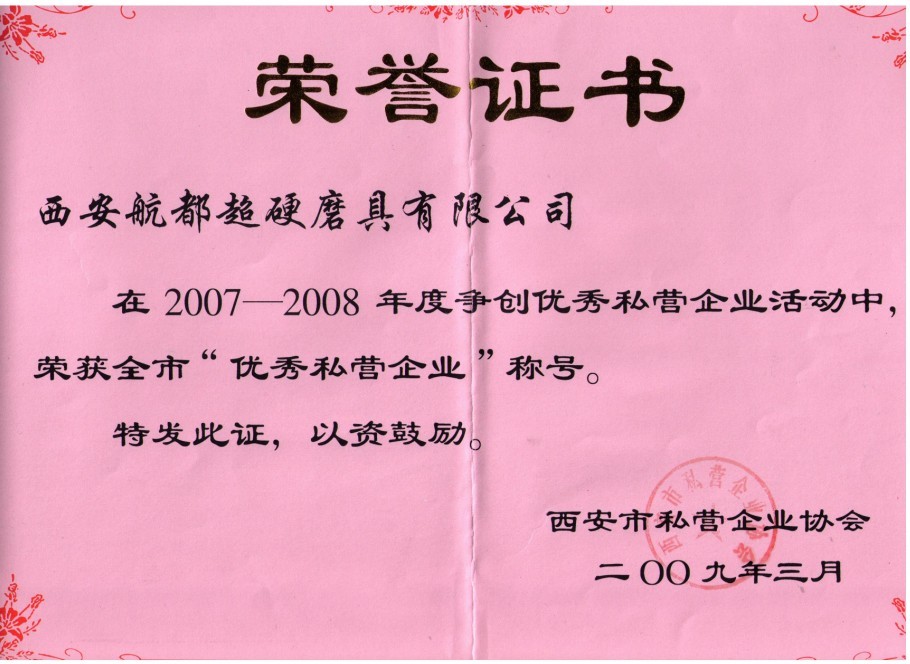 荣誉证书
西安航都超硬磨具有限公司
在 2007—2008 年度争创优秀私营企业活动中，
荣获全市“优秀私营企业”称号。
特发此证，以资鼓励。
西安市私营企业协会
二〇〇九年三月